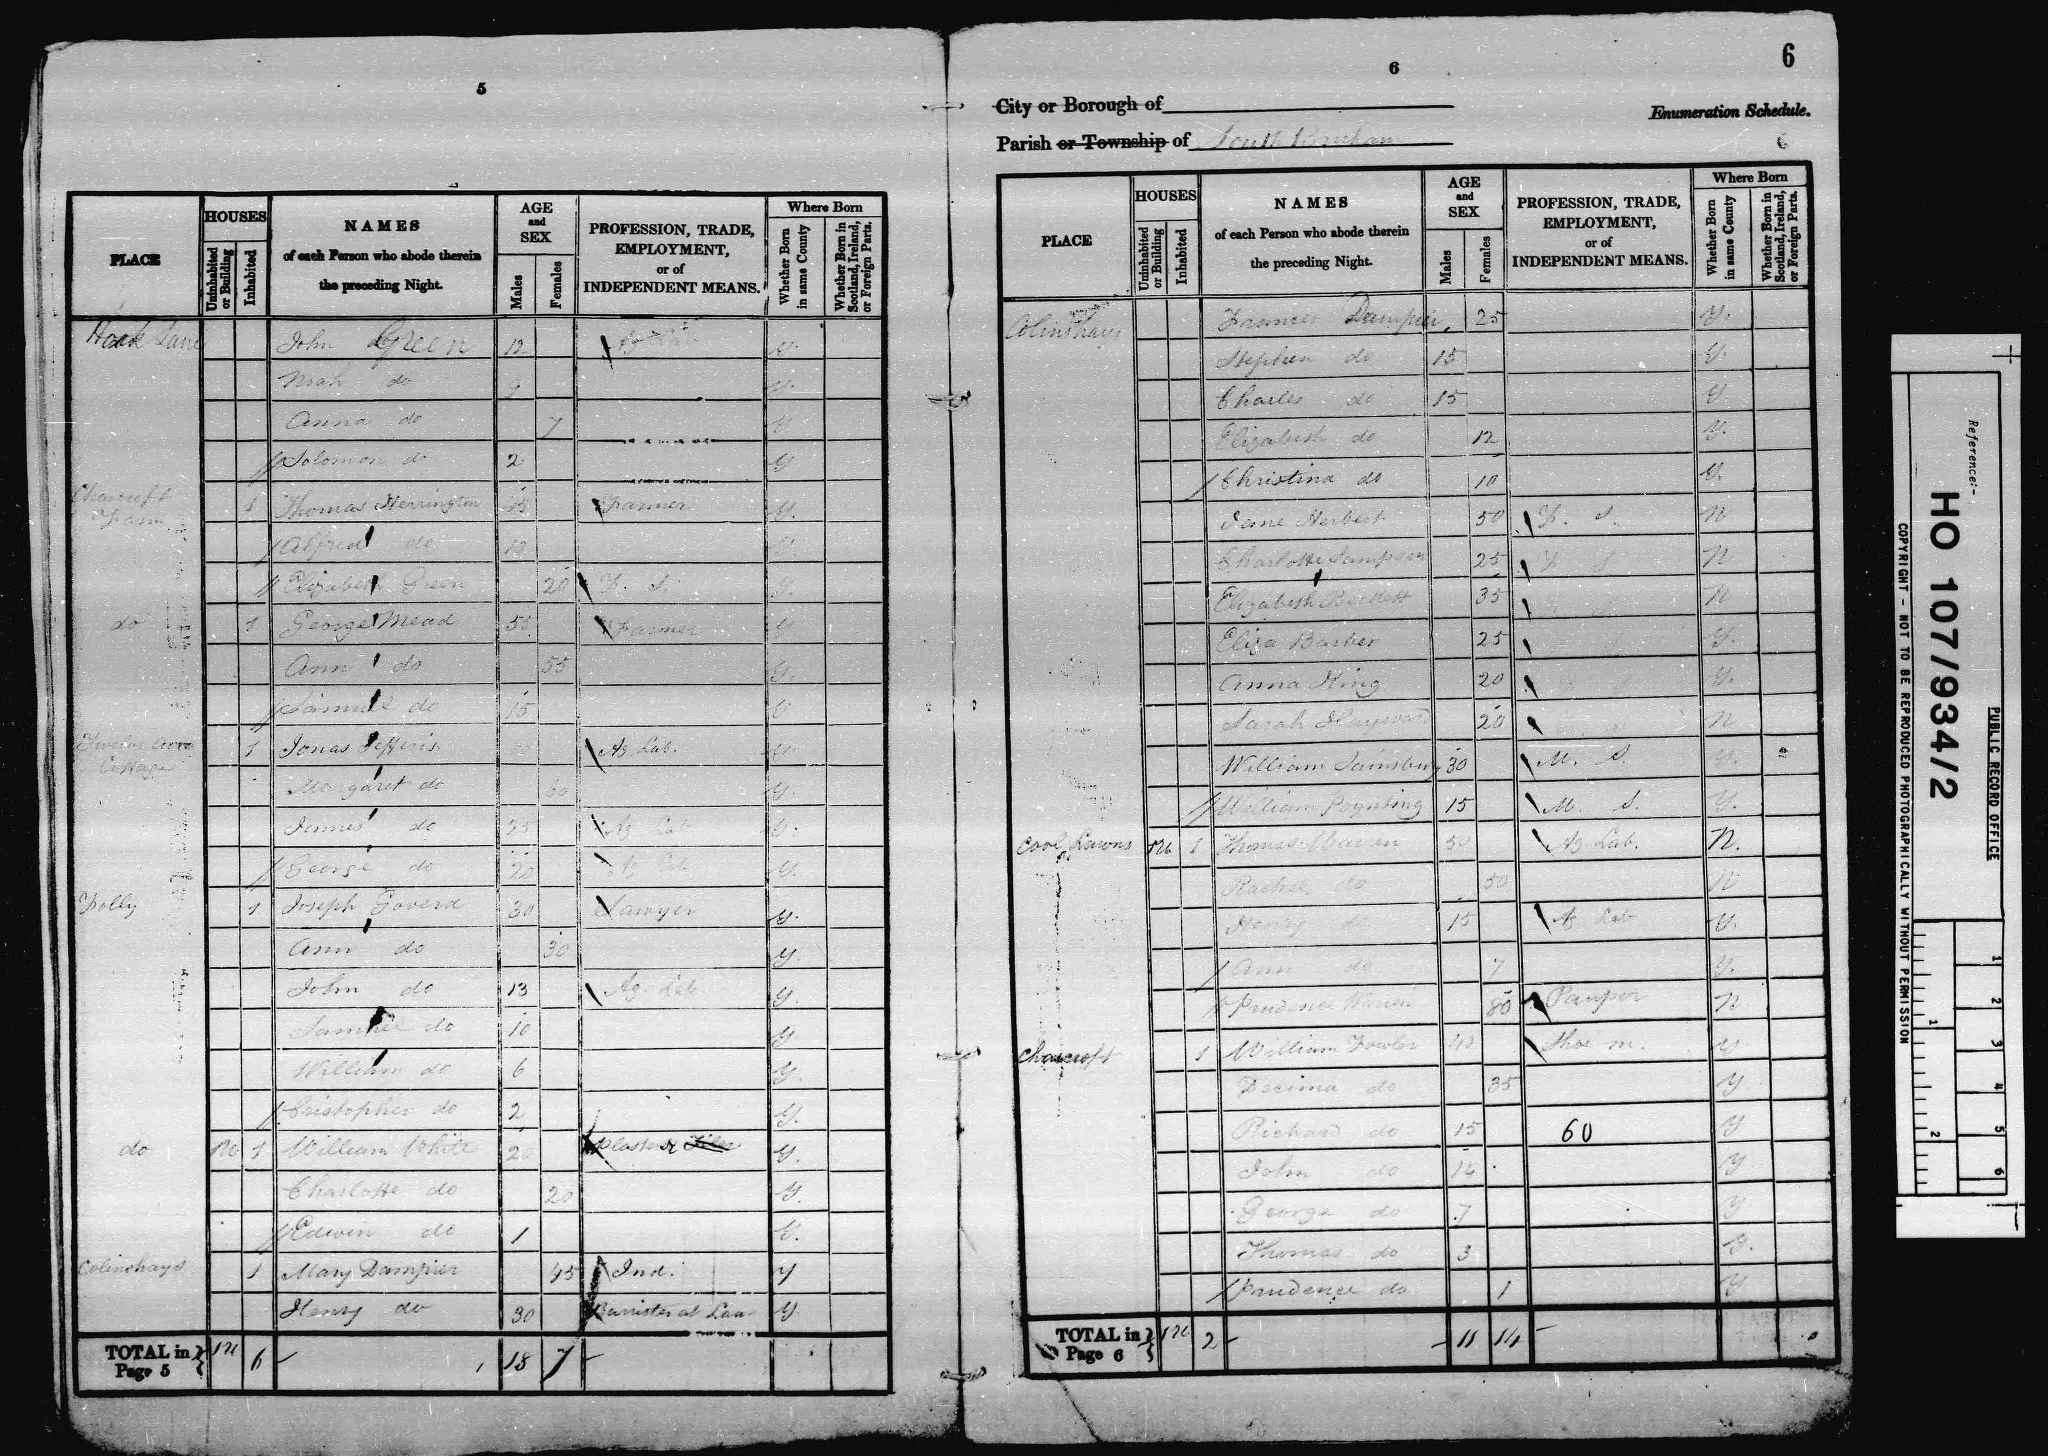 5
PLACE
HOUSES
Uninhabited or Building
Inhabited
NAMES
of each Person who abode therein
the preceding Night.
AGE
and
SEX
Males
Females
PROFESSION, TRADE,
EMPLOYMENT,
or of
INDEPENDENT MEANS.
Where Born
Whether Born in same County
Whether Born in Scotland, Ireland, or Foreign Parts.
Lane John Green 12 Ag Lab y.
do 9 y.
Anna do 7 y
Solomon do 2 y
Charcroft Farm 1 Thomas Herrington 45 Farmer y.
Alfred do y.
Elizabeth Green 20 F. S. y.
do 1 George Mead Farmer y
Ann do 55 y.
Samuel do 15 y
Cottage 1 Jonas Jefferis Ag. Lab. y.
Margaret do 60 y.
James do 25 Ag Lab y.
George do 20 Ag Lab y.
Folly 1 Joseph 30 Sawyer y.
Ann do 30 y.
John do 13 Ag. Lab y.
Samuel do 10 y
William do 6 y.
Cristopher do 2 y.
do 1 William White 20 y.
Charlotte do 20 y.
Edwin do 1 y.
Colinshays 1 Mary Dampier 45 Ind. y
Henry do 30 Barrister at Law y
TOTAL in Page 5 6 - 18 7 -
6
6
City or Borough of
Enumeration Schedule.
Parish or Township of South
6
PLACE
HOUSES
Uninhabited or Building
Inhabited
NAMES
of each Person who abode therein
the preceding Night.
AGE
and
SEX
Males
Females
PROFESSION, TRADE,
EMPLOYMENT,
or of
INDEPENDENT MEANS.
Where Born
Whether Born in same County
Whether Born in Scotland, Ireland, or Foreign Parts.
Colinshays Frances Dampier 25 y.
Stephen do 15 y.
Charles do 15 y
Elizabeth do 12 y.
Christina do 10 y.
Jane Herbert 50 F. S. N
Charlotte Sampson 25 F S N
Elizabeth 35 N
Eliza Barber 25 y.
Anna King 20 y.
Sarah Hayward 20 N
William Sainsbury 30 M. S. y.
William Poynting 15 M. S. y.
Cool Lawns 1 Thomas Warren 50 Ag Lab. N.
Rachel do 50 N
Henry do 15 Ag Lab y.
Ann do 7 y.
Prudence Warren 80 Pauper N
Charcroft 1 William Fowler 40 Shoe m. y
Decima do 35 y
Richard do 15 60 y
John do y
George do 7 y
Thomas do 3 y.
Prudence do 1 y
TOTAL in Page 6 2 - 11 14 -
Reference:-
HO 107/934/2
PUBLIC RECORD OFFICE
COPYRIGHT - NOT TO BE REPRODUCED PHOTOGRAPHICALLY WITHOUT PERMISSION
1
2
3
4
5
6
1
2